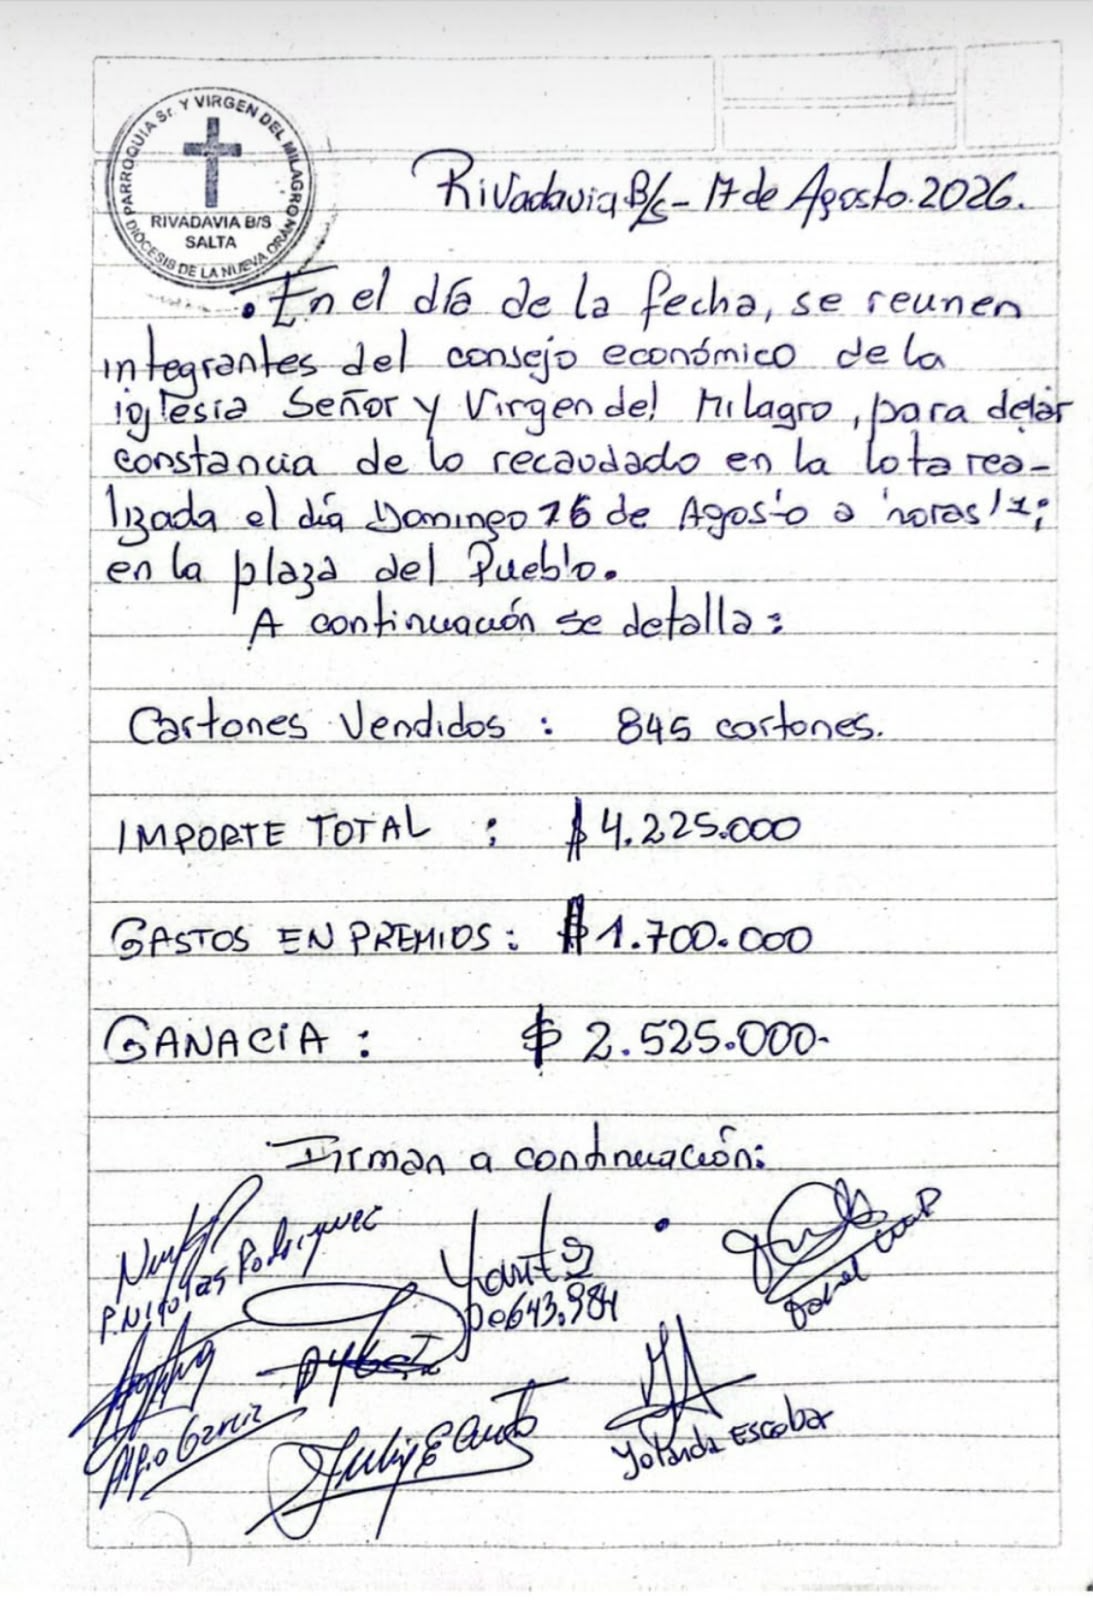 PARROQUIA Sr. Y VIRGEN DEL MILAGRO
RIVADAVIA B/S
SALTA
DIOCESIS DE LA NUEVA ORAN
Rivadavia B/S - 17 de Agosto. 2026.
. En el día de la fecha, se reunen
integrantes del consejo económico de la
iglesia Señor y Virgen del Milagro, para dejar
constancia de lo recaudado en la lota rea-
lizada el día Domingo 16 de Agosto a horas
en la plaza del Pueblo.
A continuación se detalla:
Cartones Vendidos : 845 cartones.
IMPORTE TOTAL : $ 4.225.000
GASTOS EN PREMIOS : $ 1.700.000
GANACIA : $ 2.525.000.-
Firman a continuación:
P. Nicolas Rodriguez
Alfio Garcia
Yolanda Escobar